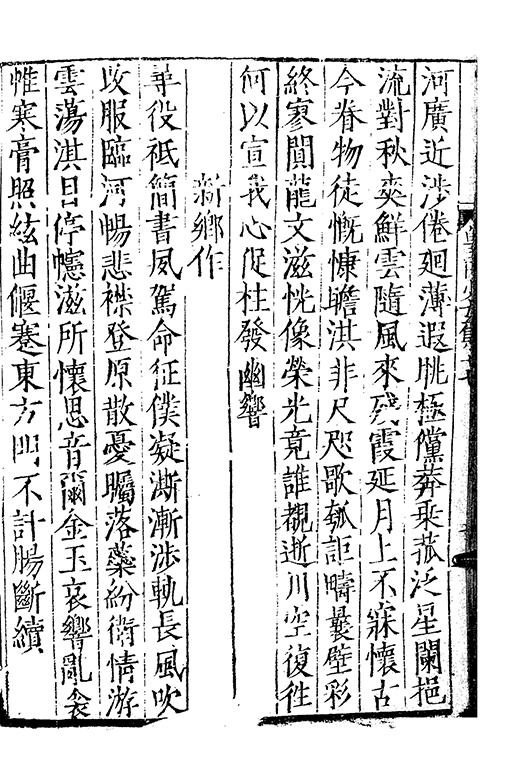 河廣近涉倦廻薄遐眺極儻莽乗菰泛星闌挹
流對秋爽鮮雲隨風來殘霞延月上不寐懷古
今眷物徒慨慷瞻淇非尺咫歌瓠詎疇曩壁彩
終寥閴龍文滋恍像榮光竟誰覩逝川空復徃
何以宣我心促柱發幽響
新鄉作
單役祗簡書夙駕命征僕凝澌漸涉軌長風吹
攻服臨河暢悲襟登原散憂矚落蘂紛衛情游
雲蕩淇目停幰滋所懷思音爾金玉哀響亂衾
帷寒膏照絃曲偃蹇東方門不計腸斷續